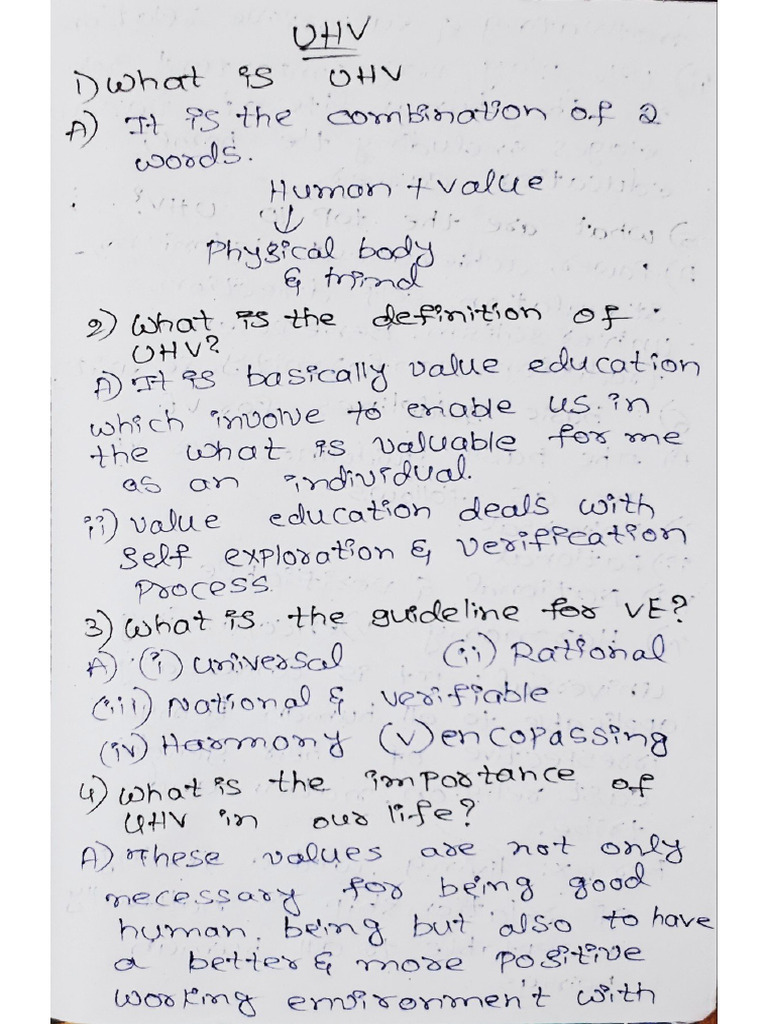 UHV
1) What is UHV
A) It is the combination of 2
words.
Human + value
↓
Physical body
& mind
2) What is the definition of
UHV?
A) It is basically value education
which involve to enable us in
the what is valuable for me
as an individual.
ii) value education deals with
self exploration & verification
process.
3) What is the guideline for VE?
A) (i) universal (ii) Rational
(iii) National & verifiable
(iv) Harmony (v) encopassing
4) What is the importance of
UHV in our life?
A) These values are not only
necessary for being good
human being but also to have
a better & more positive
working environment with